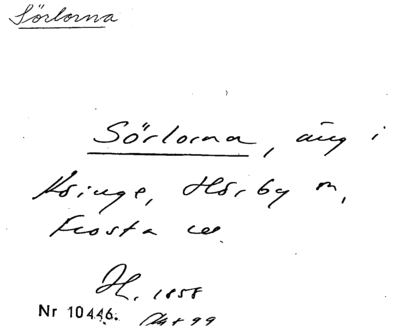 Sörlorna
Sörlorna, äng i
Hörby m,
Frosta
H. 1858
Nr 10446.